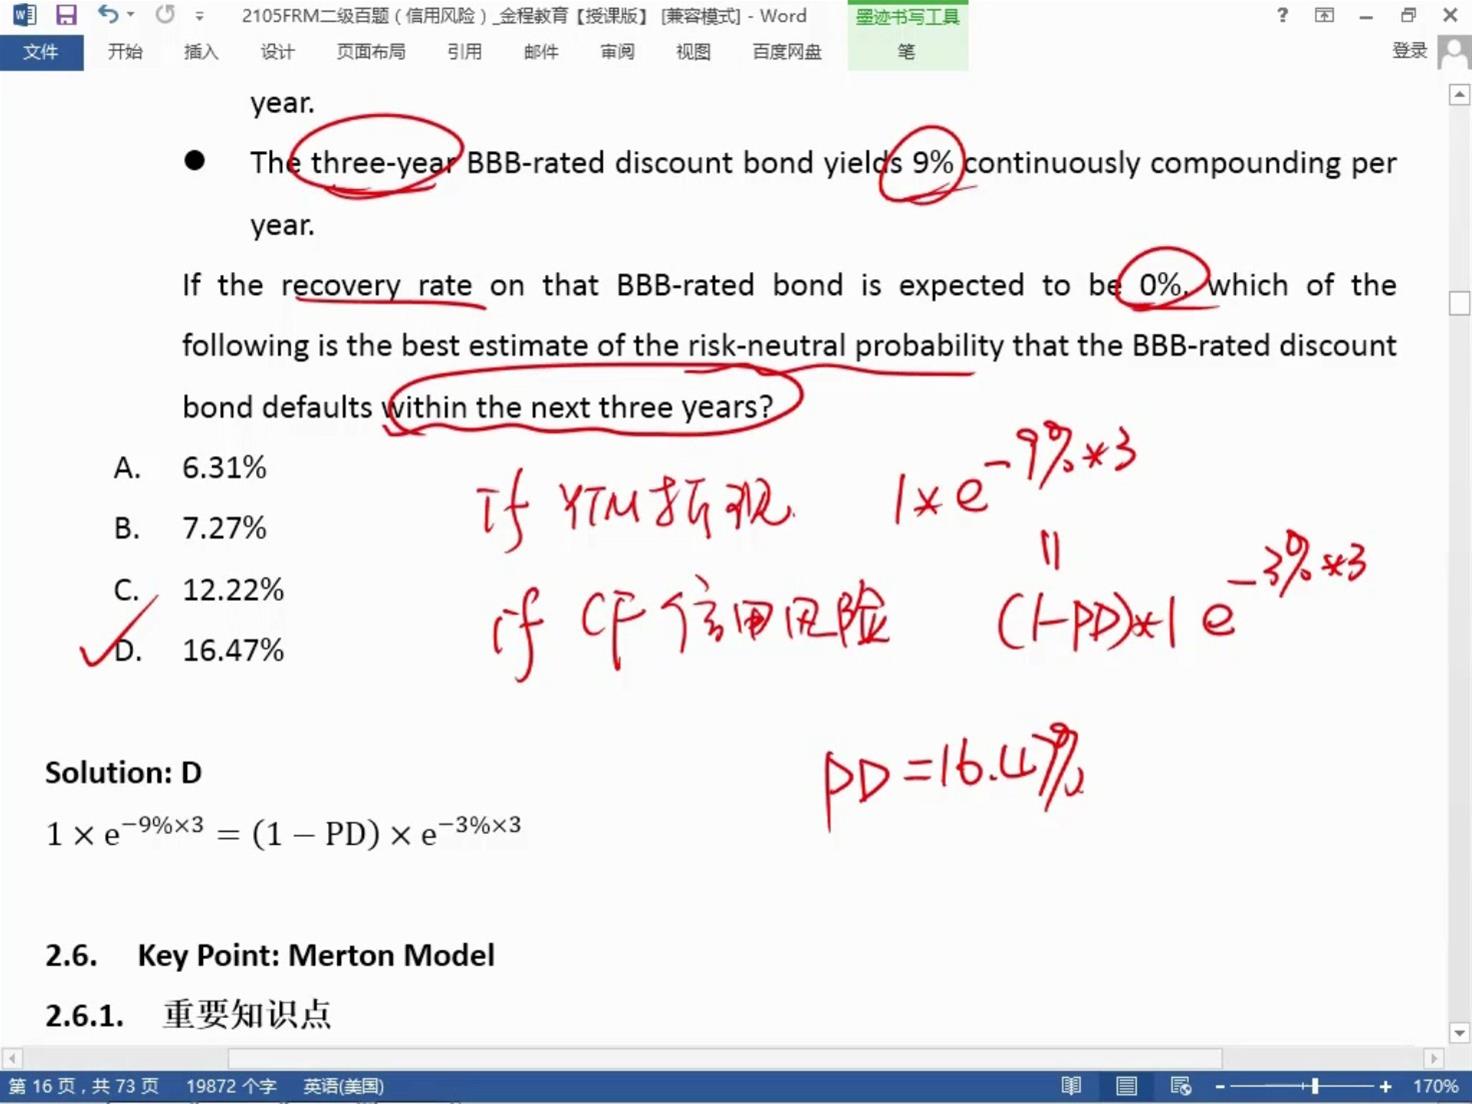 2105FRM二级百题（信用风险）_金程教育【授课版】 [兼容模式] - Word
墨迹书写工具
文件
开始
插入
设计
页面布局
引用
邮件
审阅
视图
百度网盘
笔
登录
year.
● The three-year BBB-rated discount bond yields 9% continuously compounding per
year.
If the recovery rate on that BBB-rated bond is expected to be 0%, which of the
following is the best estimate of the risk-neutral probability that the BBB-rated discount
bond defaults within the next three years?
A. 6.31%
B. 7.27%
C. 12.22%
D. 16.47%
if YTM折现 1*e^-9%*3
=
if CF信用风险 (1-PD)*1 e^-3%*3
PD=16.47%
Solution: D
1 × e^−9%×3 = (1 − PD) × e^−3%×3
2.6. Key Point: Merton Model
2.6.1. 重要知识点
第 16 页，共 73 页 19872 个字 英语(美国) 170%